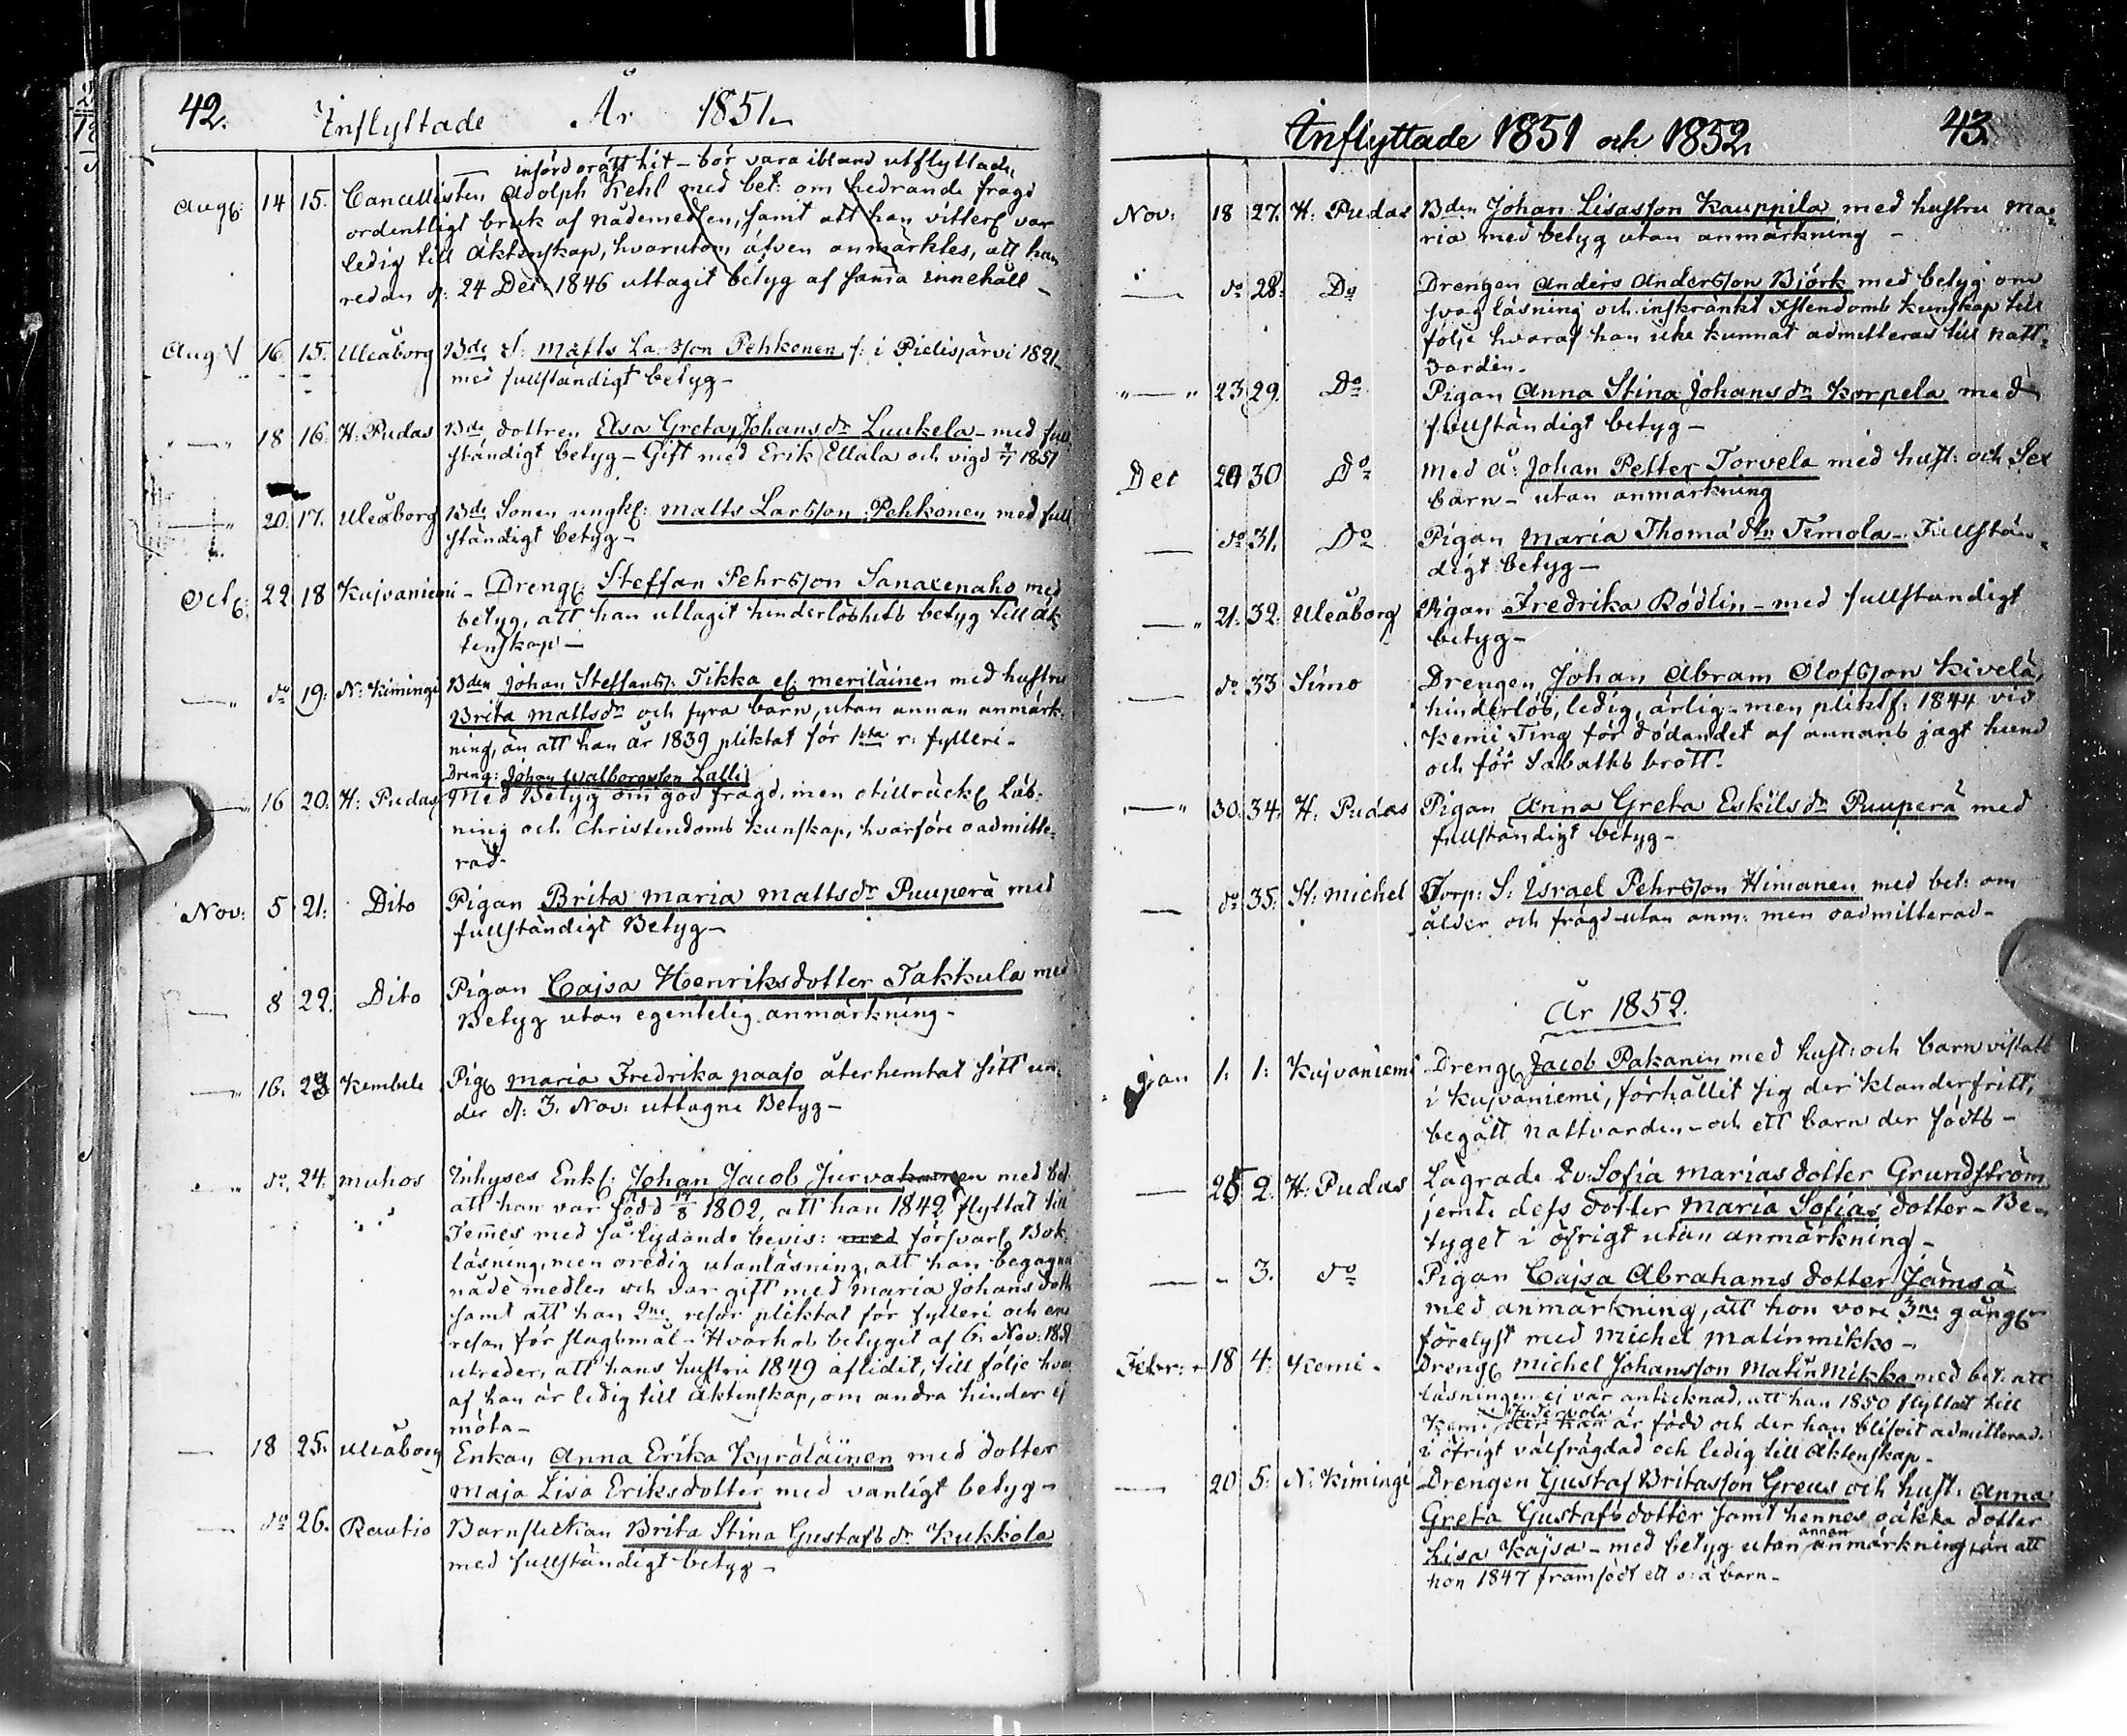 42. Inflyttade År 1851
införd orätt hit - bör vara ibland utflyttade
Augs: 14 15. Cancellisten Adolph Kehl med bet: om hedrande frägd
ordentligt bruk af nådemedlen, samt att han vitterl var
ledig till äktenskap, hvarutom äfven anmärktes, att han
redan d: 24 Dec 1846 uttagit betyg af samma innehåll -
Aug 16 15. Uleåborg Bde S: Matts Larsson Pehkonen f: i Pielisjärvi 1821
med fullständigt betyg -
18 16. H: Pudas Bde dottren Elsa Greta Johansdr Luukela - med full
ständigt betyg - Gift med Erik Ellala och vigd 1851
20. 17. Uleåborg Bde Sonen ungk: Matts Larsson Pehkonen med full
ständigt betyg -
Oct: 22 18 Kujvaniemi - Dreng: Steffan Pehrsson Sanaxenaho med
betyg, att han uttagit hinderlöshets betyg till äk
tenskap -
do 19: N: Kimingi Bden Johan Steffans: Tikka el: Meriläinen med hustru
Brita Mattsdr och fyra barn, utan annan anmärk-
ning, än att han år 1839 pliktat för 1sta r: fylleri -
Dreng: Johan Walborgsson Lalli
16 20. H: Pudas Med Betyg om god frägd, men otillräckl Läs-
ning och Christendoms kunskap, hvarföre oadmitte-
rad -
Nov: 5 21. Dito Pigan Brita Maria Mattsdr Puuperä med
fullständigt Betyg -
8 22. Dito Pigan Cajsa Henriksdotter Takkula med
Betyg utan egentelig anmärkning -
16. 23 Kembele Pig: Maria Fredrika Paaso återhemtat sitt un-
der d: 3. Nov: uttagne Betyg -
do. 24. Muhos Inhyses Enkl: Johan Jacob Jurvahanen med bet
att han var född 1802, att han 1842 flyttat till
Temmes med så lydande bevis: med försvarl Bok-
läsning, men oredig utanläsning, att han begagna
nådemedlen och var gift med Maria Johans dott
samt att han 2ne resor pliktat för fylleri och en
resan för slagsmål - Hvarhos betyget af 6. Nov: 1851
utreder, att hans hustru 1849 aflidit, till följe hvar
af han är ledig till äktenskap, om andra hinder ej
möta -
18 25. Uleåborg Enkan Anna Erika Kyröläinen med dotter
Maja Lisa Eriksdotter med vanligt betyg -
do 26. Rautio Barnflickan Brita Stina Gustafsdr Kukkola
med fullständigt betyg -
Inflyttade 1851 och 1852. 43.
Nov: 18 27. H: Pudas Bden Johan Lisasson Kauppila med hustru Ma-
ria med betyg utan anmärkning -
do 28. Do Drengen Anders Andersson Björk med betyg om
svag läsning och inskränkt Xstendoms kunskap till
följe hvaraf han icke kunnat admitteras till natt-
varden -
23 29. Do Pigan Anna Stina Johansdr Korpela med
fullständigt betyg -
Dec 20 30 Do Med å: Johan Petter Torvela med hust: och Sex
barn - utan anmärkning
do 31. Do Pigan Maria Thomädtr Temola - Fullstän-
digt betyg -
21. 32. Uleåborg Pigan Fredrika Rödlin - med fullständigt
betyg -
do 33 Simo Drengen Johan Abram Olofsson Kivelä,
hinderlös, ledig, ärlig - men pliktf: 1844 vid
Kemi Ting för dödandet af annans jagt hund
och för Sabaths brott.
30. 34. H. Pudas Pigan Anna Greta Eskilsdr Puuperä med
fullständigt betyg -
do 35. St: Michel Torp: S: Israel Pehrsson Himanen med bet: om
ålder och frägd utan anm: men oadmitterad -
År 1852.
Jan 1. 1: Kujvaniemi Dreng: Jacob Pakanen med hust: och barn vistats
i Kujvaniemi, förhållit sig der klanderfritt,
begått nattvarden - och ett barn der födts -
25 2. H: Pudas Lägrade Qv: Sofia Marias dotter Grundström
jemte dess dotter Maria Sofias dotter - Be-
tyget i öfrigt utan anmärkning -
3. do Pigan Cajsa Abrahams dotter Jämsä
med anmärkning, att hon vore 3ne gånger
förelyst med Michel Matinmikko -
Febr: 18 4: Kemi - Dreng: Michel Johansson Matin Mikko med bet: att
läsningen ej var antecknad, att han 1850 flyttat till
Kemi der han är född och der han blifvit admitterad.
i öfrigt välfrägdad och ledig till Äktenskap -
20 5. N: Kimingi Drengen Gustaf Britasson Greus och hust: Anna
Greta Gustafs dotter samt hennes oäkta dotter
Lisa Kajsa - med betyg utan annan anmärkning, än att
hon 1847 framfödt ett o: ä barn -